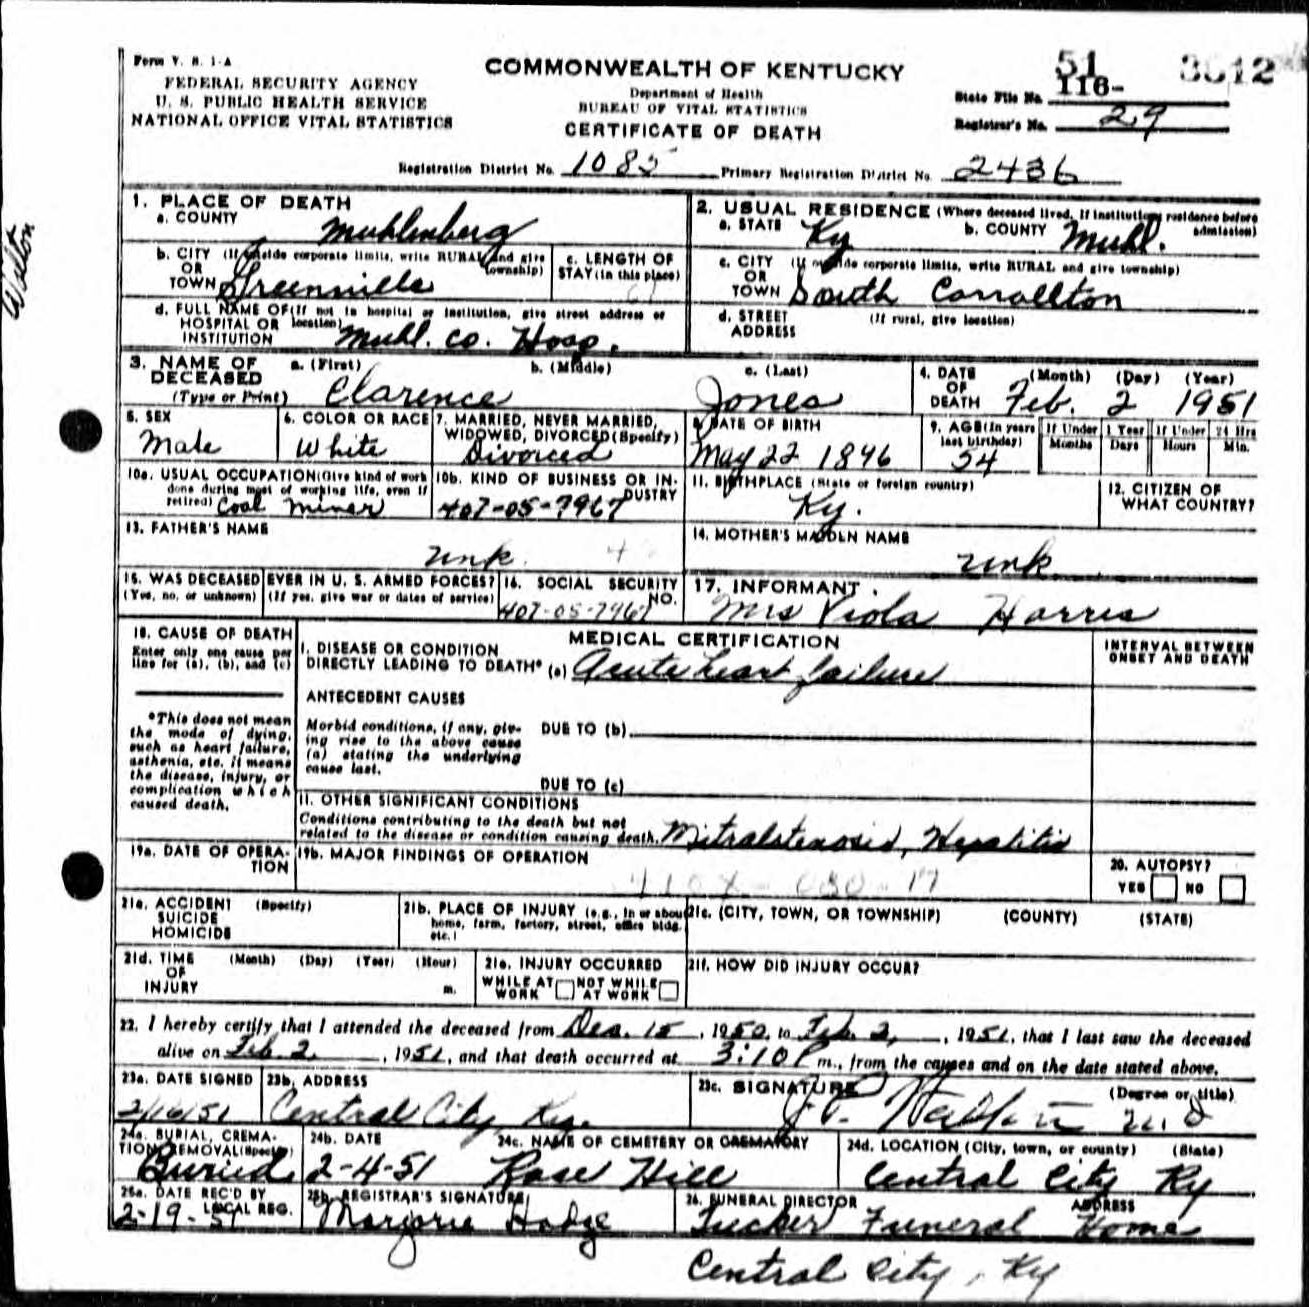 Form V. S. 1-A
FEDERAL SECURITY AGENCY
U. S. PUBLIC HEALTH SERVICE
NATIONAL OFFICE VITAL STATISTICS
COMMONWEALTH OF KENTUCKY
Department of Health
BUREAU OF VITAL STATISTICS
CERTIFICATE OF DEATH
51
State File No. 116-
Registrar's No. 29
Registration District No. 1085 Primary Registration District No. 2436
1. PLACE OF DEATH
a. COUNTY Muhlenberg
2. USUAL RESIDENCE (Where deceased lived. If institution: residence before admission)
a. STATE Ky b. COUNTY Muhl.
b. CITY (If outside corporate limits, write RURAL and give township)
OR
TOWN Greenville
c. LENGTH OF
STAY (in this place)
c. CITY (If outside corporate limits, write RURAL and give township)
OR
TOWN South Carrollton
d. FULL NAME OF (If not in hospital or institution, give street address or location)
HOSPITAL OR
INSTITUTION Muhl. Co. Hosp.
d. STREET (If rural, give location)
ADDRESS
3. NAME OF DECEASED
(Type or Print)
a. (First) b. (Middle) c. (Last)
Clarence Jones
4. DATE OF DEATH (Month) (Day) (Year)
Feb. 2 1951
5. SEX
Male
6. COLOR OR RACE
White
7. MARRIED, NEVER MARRIED,
WIDOWED, DIVORCED (Specify)
Divorced
8. DATE OF BIRTH
May 22 1896
9. AGE (In years last birthday)
54
If Under 1 Year If Under 24 Hrs
Months Days Hours Min.
10a. USUAL OCCUPATION (Give kind of work
done during most of working life, even if
retired) Coal Miner
10b. KIND OF BUSINESS OR INDUSTRY
407-05-7967
11. BIRTHPLACE (State or foreign country)
Ky.
12. CITIZEN OF
WHAT COUNTRY?
13. FATHER'S NAME
Unk.
14. MOTHER'S MAIDEN NAME
Unk
15. WAS DECEASED EVER IN U. S. ARMED FORCES?
(Yes, no, or unknown) (If yes, give war or dates of service)
16. SOCIAL SECURITY NO.
407-05-7967
17. INFORMANT.
Mrs Viola Harris
18. CAUSE OF DEATH
Enter only one cause per
line for (a), (b), and (c)
*This does not mean
the mode of dying,
such as heart failure,
asthenia, etc. It means
the disease, injury, or
complication which
caused death.
MEDICAL CERTIFICATION
INTERVAL BETWEEN
ONSET AND DEATH
I. DISEASE OR CONDITION
DIRECTLY LEADING TO DEATH* (a) Acute heart failure
ANTECEDENT CAUSES
Morbid conditions, if any, giv-
ing rise to the above cause
(a) stating the underlying
cause last.
DUE TO (b)
DUE TO (c)
11. OTHER SIGNIFICANT CONDITIONS
Conditions contributing to the death but not
related to the disease or condition causing death. Mitral stenosis, Hepatitis
19a. DATE OF OPERA-
TION
19b. MAJOR FINDINGS OF OPERATION
20. AUTOPSY?
YES NO
21a. ACCIDENT (Specify)
SUICIDE
HOMICIDE
21b. PLACE OF INJURY (e.g., in or about
home, farm, factory, street, office bldg.
etc.)
21c. (CITY, TOWN, OR TOWNSHIP) (COUNTY) (STATE)
21d. TIME (Month) (Day) (Year) (Hour)
OF
INJURY m.
21e. INJURY OCCURRED
WHILE AT WORK NOT WHILE AT WORK
21f. HOW DID INJURY OCCUR?
22. I hereby certify that I attended the deceased from Dec. 15, 1950, to Feb. 2, 1951, that I last saw the deceased
alive on Feb. 2, 1951, and that death occurred at 3:10 P m., from the causes and on the date stated above.
23a. DATE SIGNED
2/16/51
23b. ADDRESS
Central City, Ky.
23c. SIGNATURE (Degree or title)
M.D
24a. BURIAL, CREMA-
TION, REMOVAL (Specify)
Buried
24b. DATE
2-4-51
24c. NAME OF CEMETERY OR CREMATORY
Rose Hill
24d. LOCATION (City, town, or county) (State)
Central City Ky
25a. DATE REC'D BY
LOCAL REG.
2-19-51
25b. REGISTRAR'S SIGNATURE
Marjorie Hodge
26. FUNERAL DIRECTOR ADDRESS
Tucker Funeral Home
Central City, Ky